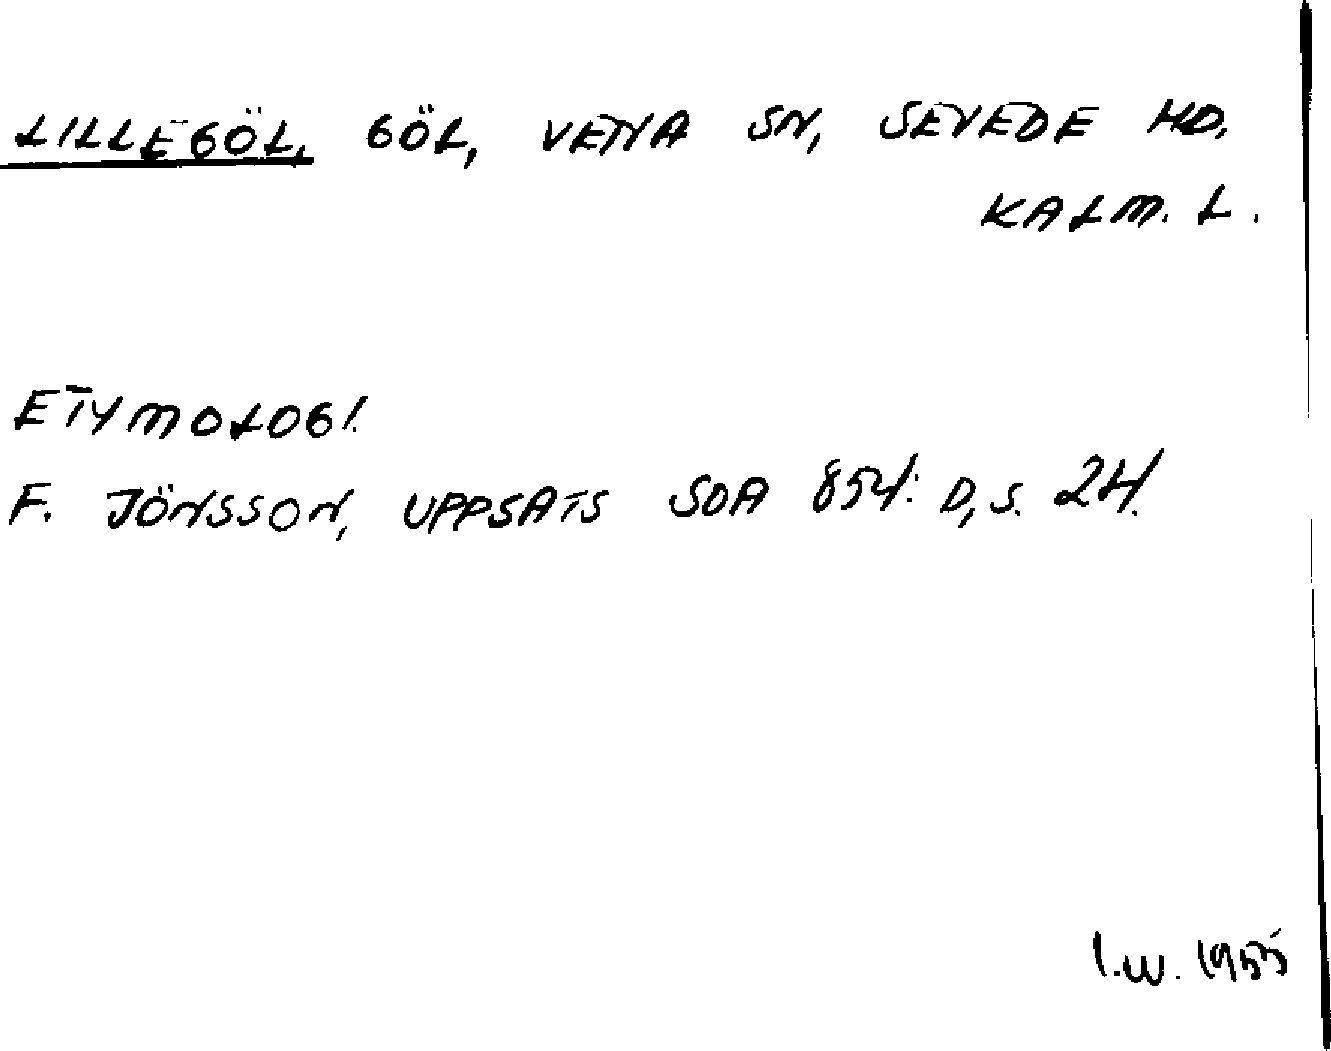 LILLEGÖL, GÖL, VENA SN, SEVEDE HD,
KALM. L.
ETYMOLOGI.
F. JÖNSSON, UPPSATS SOA 854: D, S. 24.
I.W. 1955